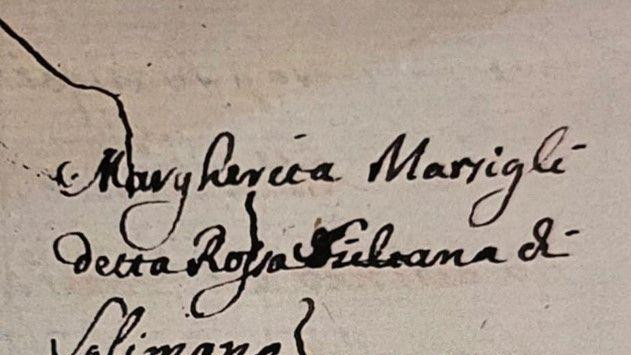 Margherita Marsigli
detta Rossa Sultana di
Solimano